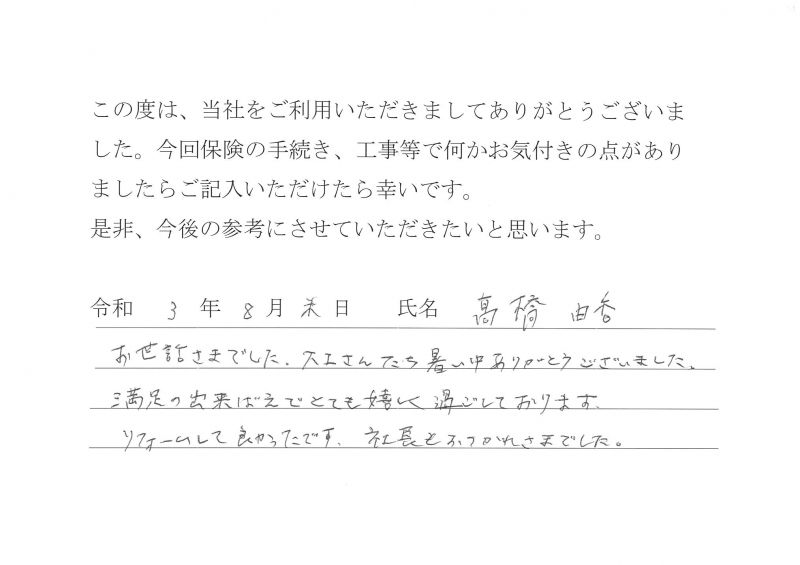 この度は、当社をご利用いただきましてありがとうございま
した。今回保険の手続き、工事等で何かお気付きの点があり
ましたらご記入いただけたら幸いです。
是非、今後の参考にさせていただきたいと思います。
令和 3 年 8 月 末 日 氏名 髙橋 由香
お世話さまでした。大工さんたち暑い中ありがとうございました。
満足の出来ばえでとても嬉しく過ごしております。
リフォームして良かったです。社長もおつかれさまでした。